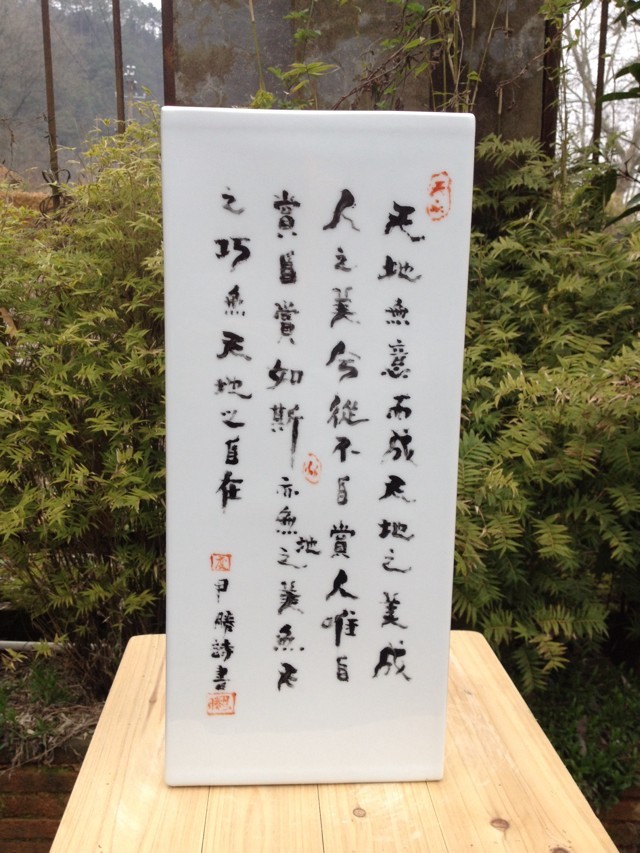 天地無意而成天地之美成
人之美今從不自賞人唯自
賞自賞如斯亦無之美無天
地
之巧無天地之自在
甲勝詩書